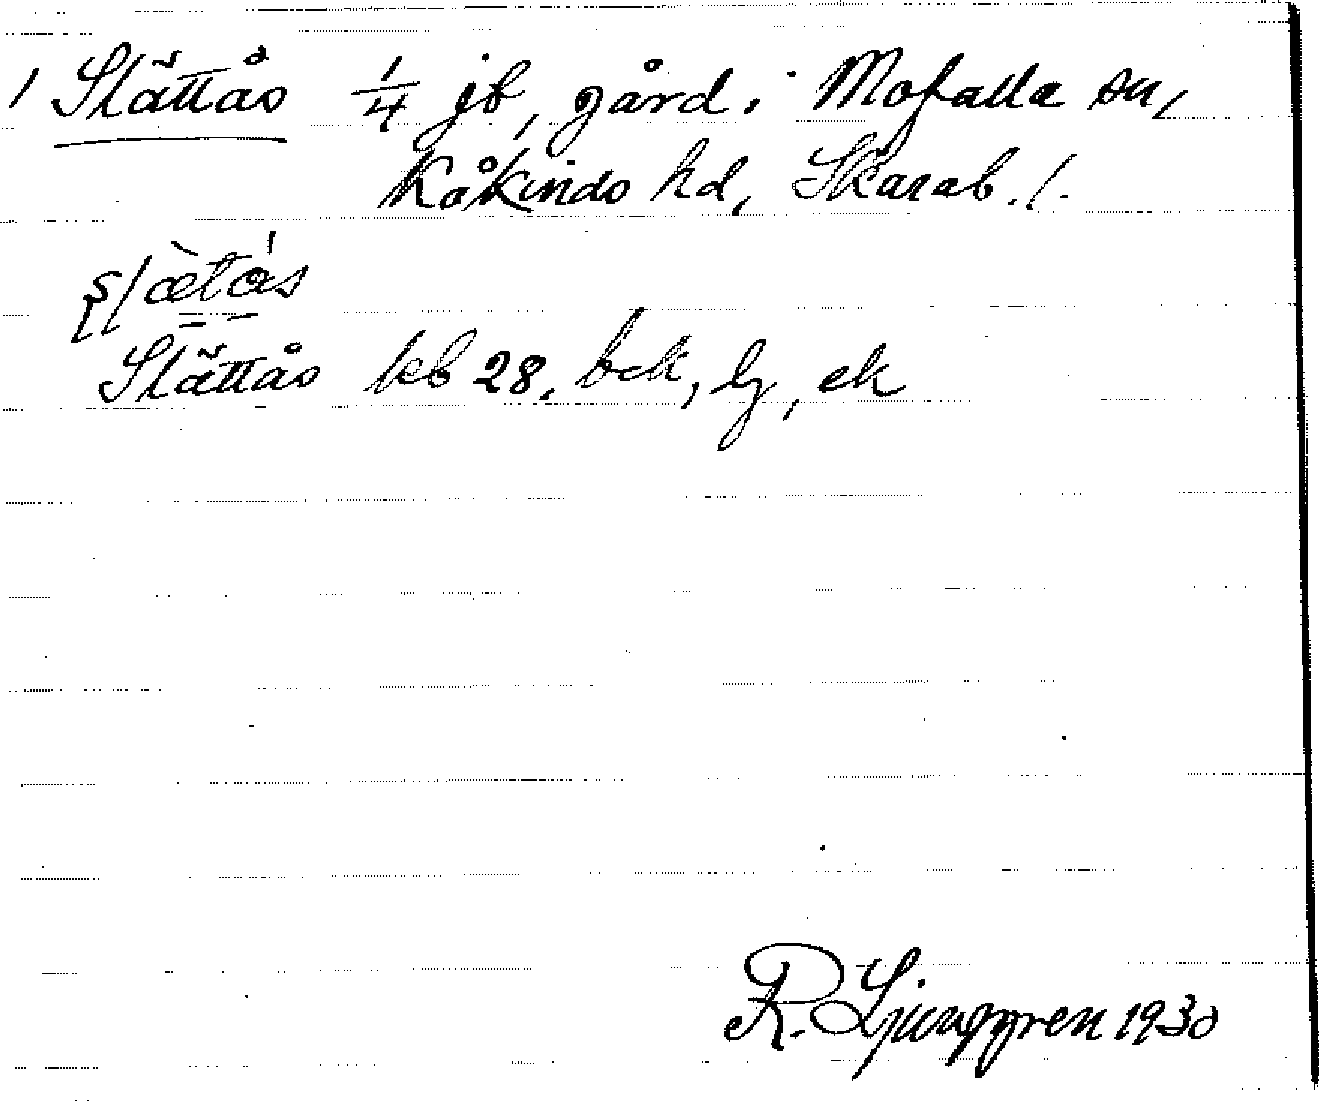 1 Slättås 1/4 jb, gård i Mofalla sn,
Kåkinds hd, Skarab. l.
Slättås kb 28, bck, lj, ek
R. Ljunggren 1930